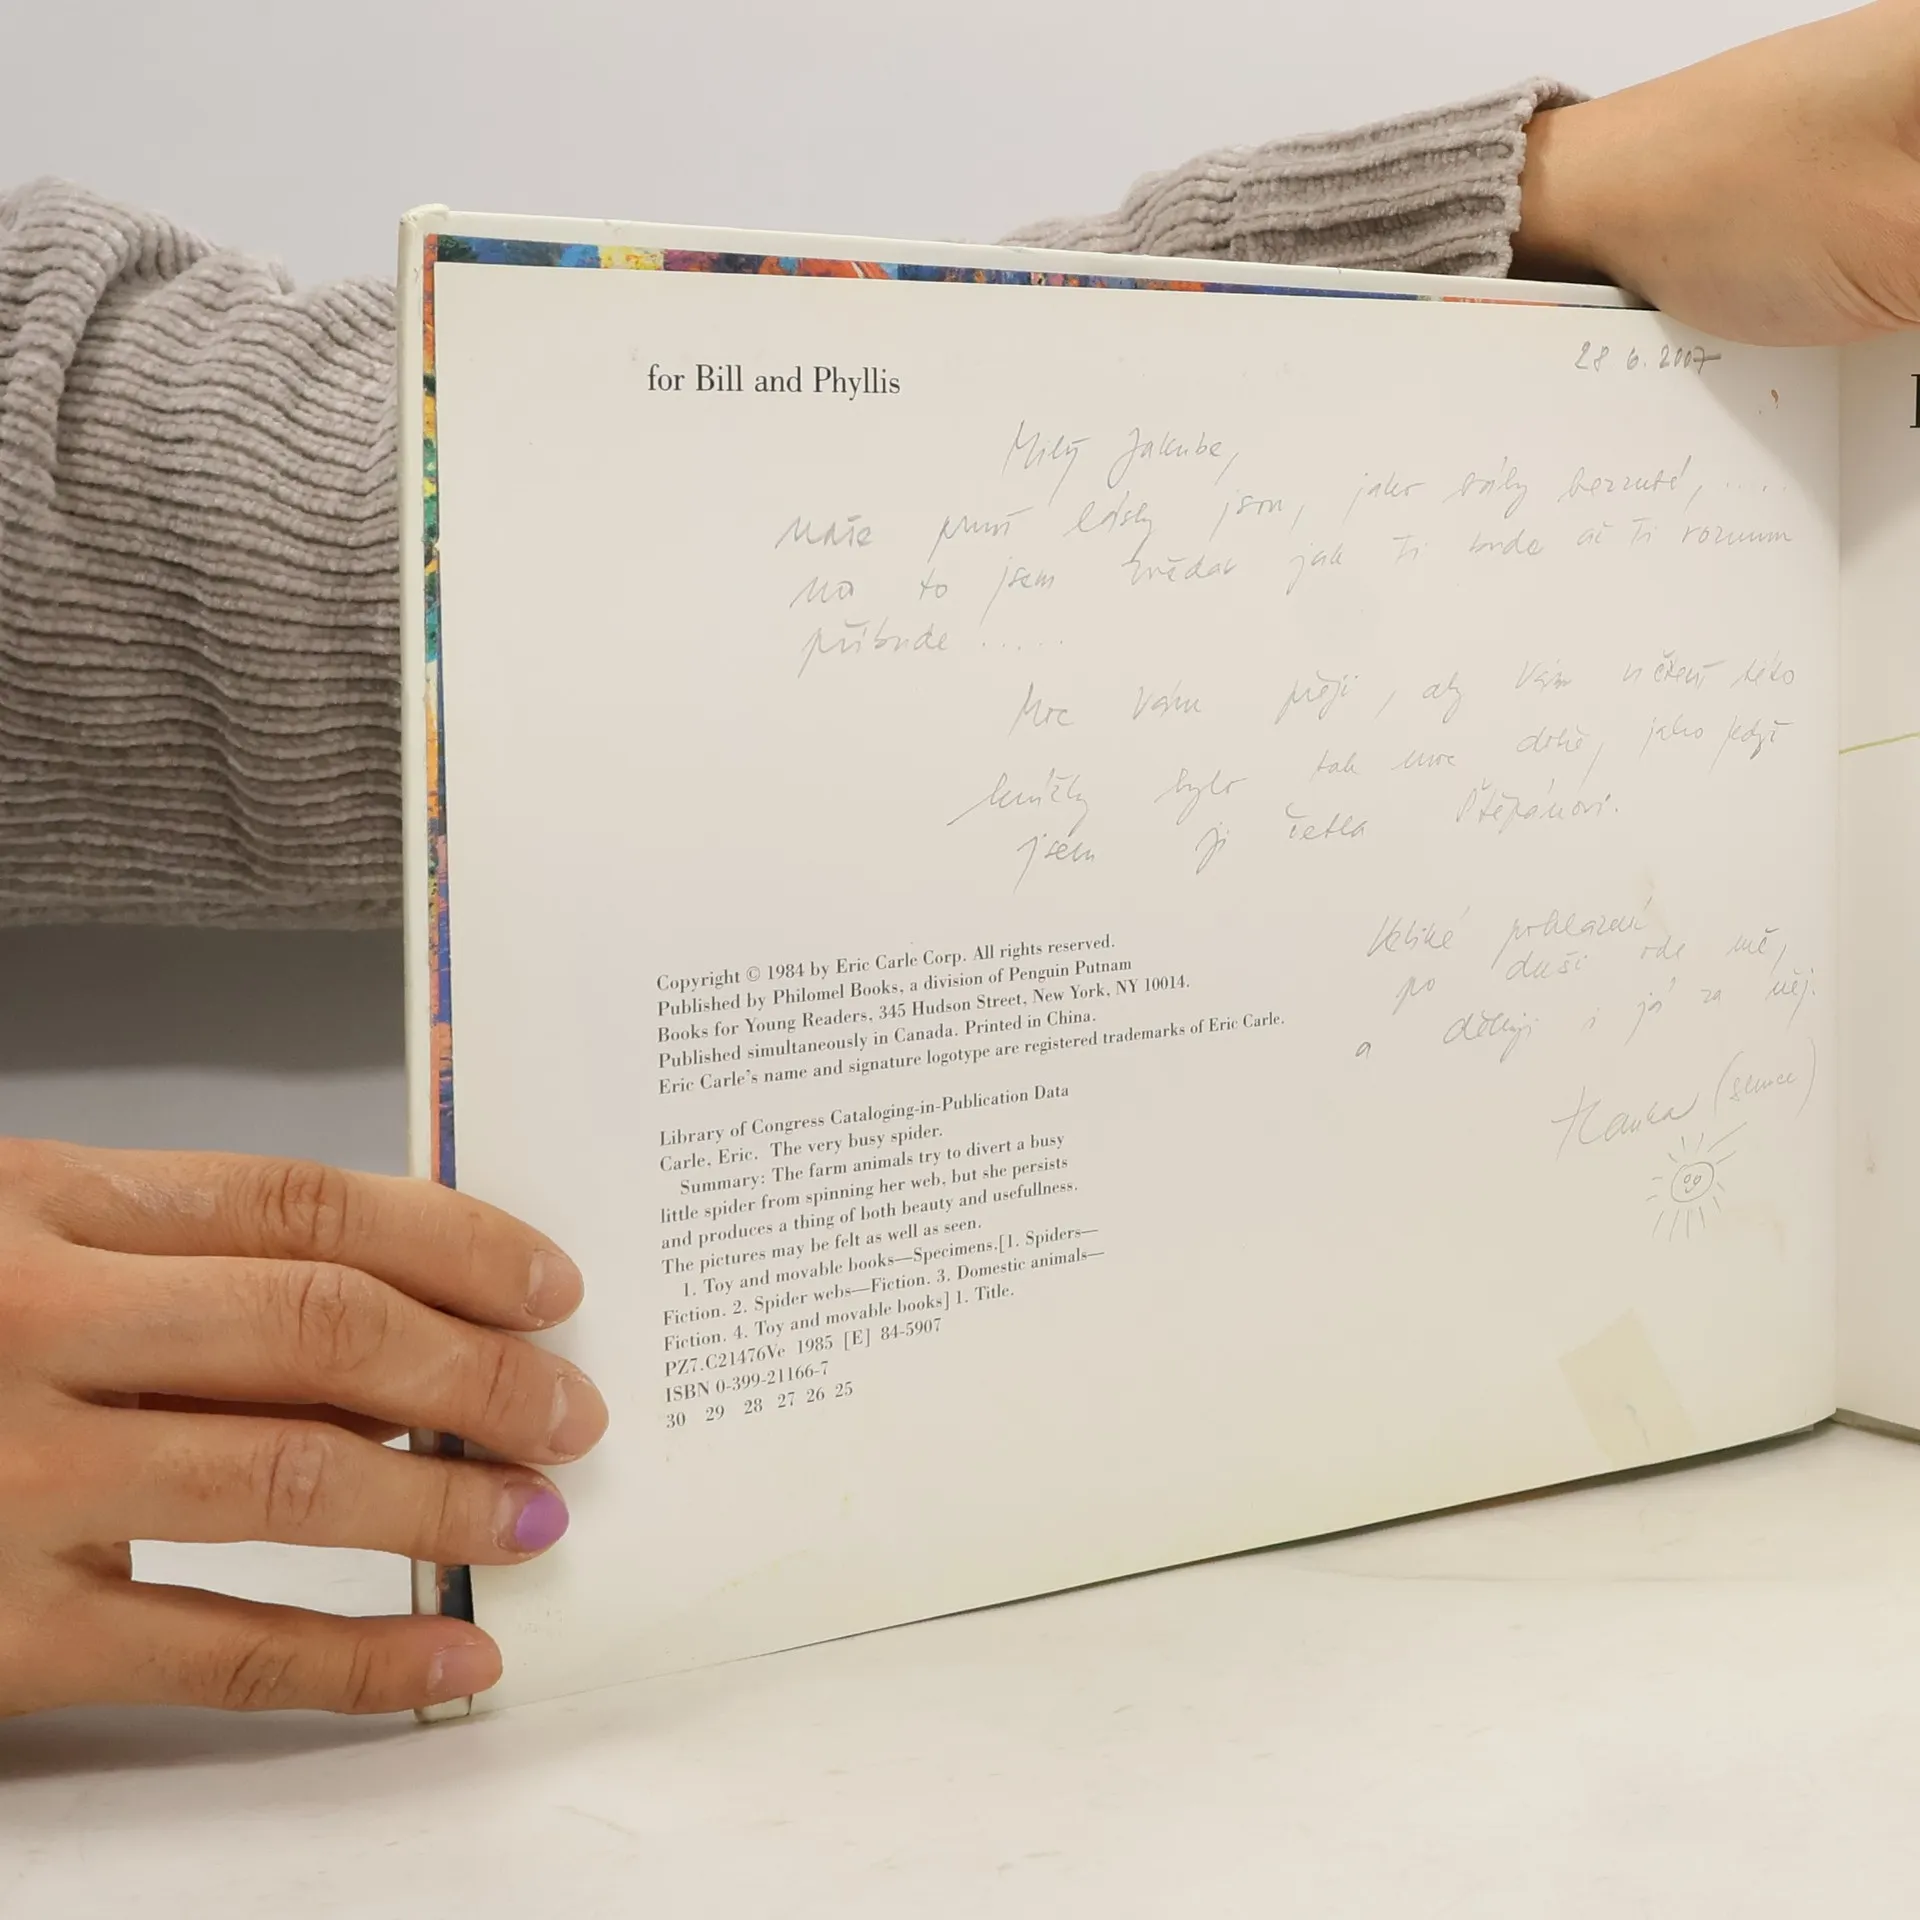 for Bill and Phyllis
28 6. 2007
Milý Jakube,
Naše první lásky jsou, jako báby bezzubé, ....
No to jsem zvědav jak Ti bude až Ti rozum
přibude .....
Moc Vám přeji, aby Vám u čtení této
knížky bylo tak moc dobře, jako když
jsem ji četla Štěpánovi.
Veliké pohlazení
po duši ode mě,
a děkuji i já za něj.
Hanka (slunce)
Copyright © 1984 by Eric Carle Corp. All rights reserved.
Published by Philomel Books, a division of Penguin Putnam
Books for Young Readers, 345 Hudson Street, New York, NY 10014.
Published simultaneously in Canada. Printed in China.
Eric Carle's name and signature logotype are registered trademarks of Eric Carle.
Library of Congress Cataloging-in-Publication Data
Carle, Eric. The very busy spider.
Summary: The farm animals try to divert a busy
little spider from spinning her web, but she persists
and produces a thing of both beauty and usefullness.
The pictures may be felt as well as seen.
1. Toy and movable books—Specimens.[1. Spiders—
Fiction. 2. Spider webs—Fiction. 3. Domestic animals—
Fiction. 4. Toy and movable books] 1. Title.
PZ7.C21476Ve 1985 [E] 84-5907
ISBN 0-399-21166-7
30 29 28 27 26 25